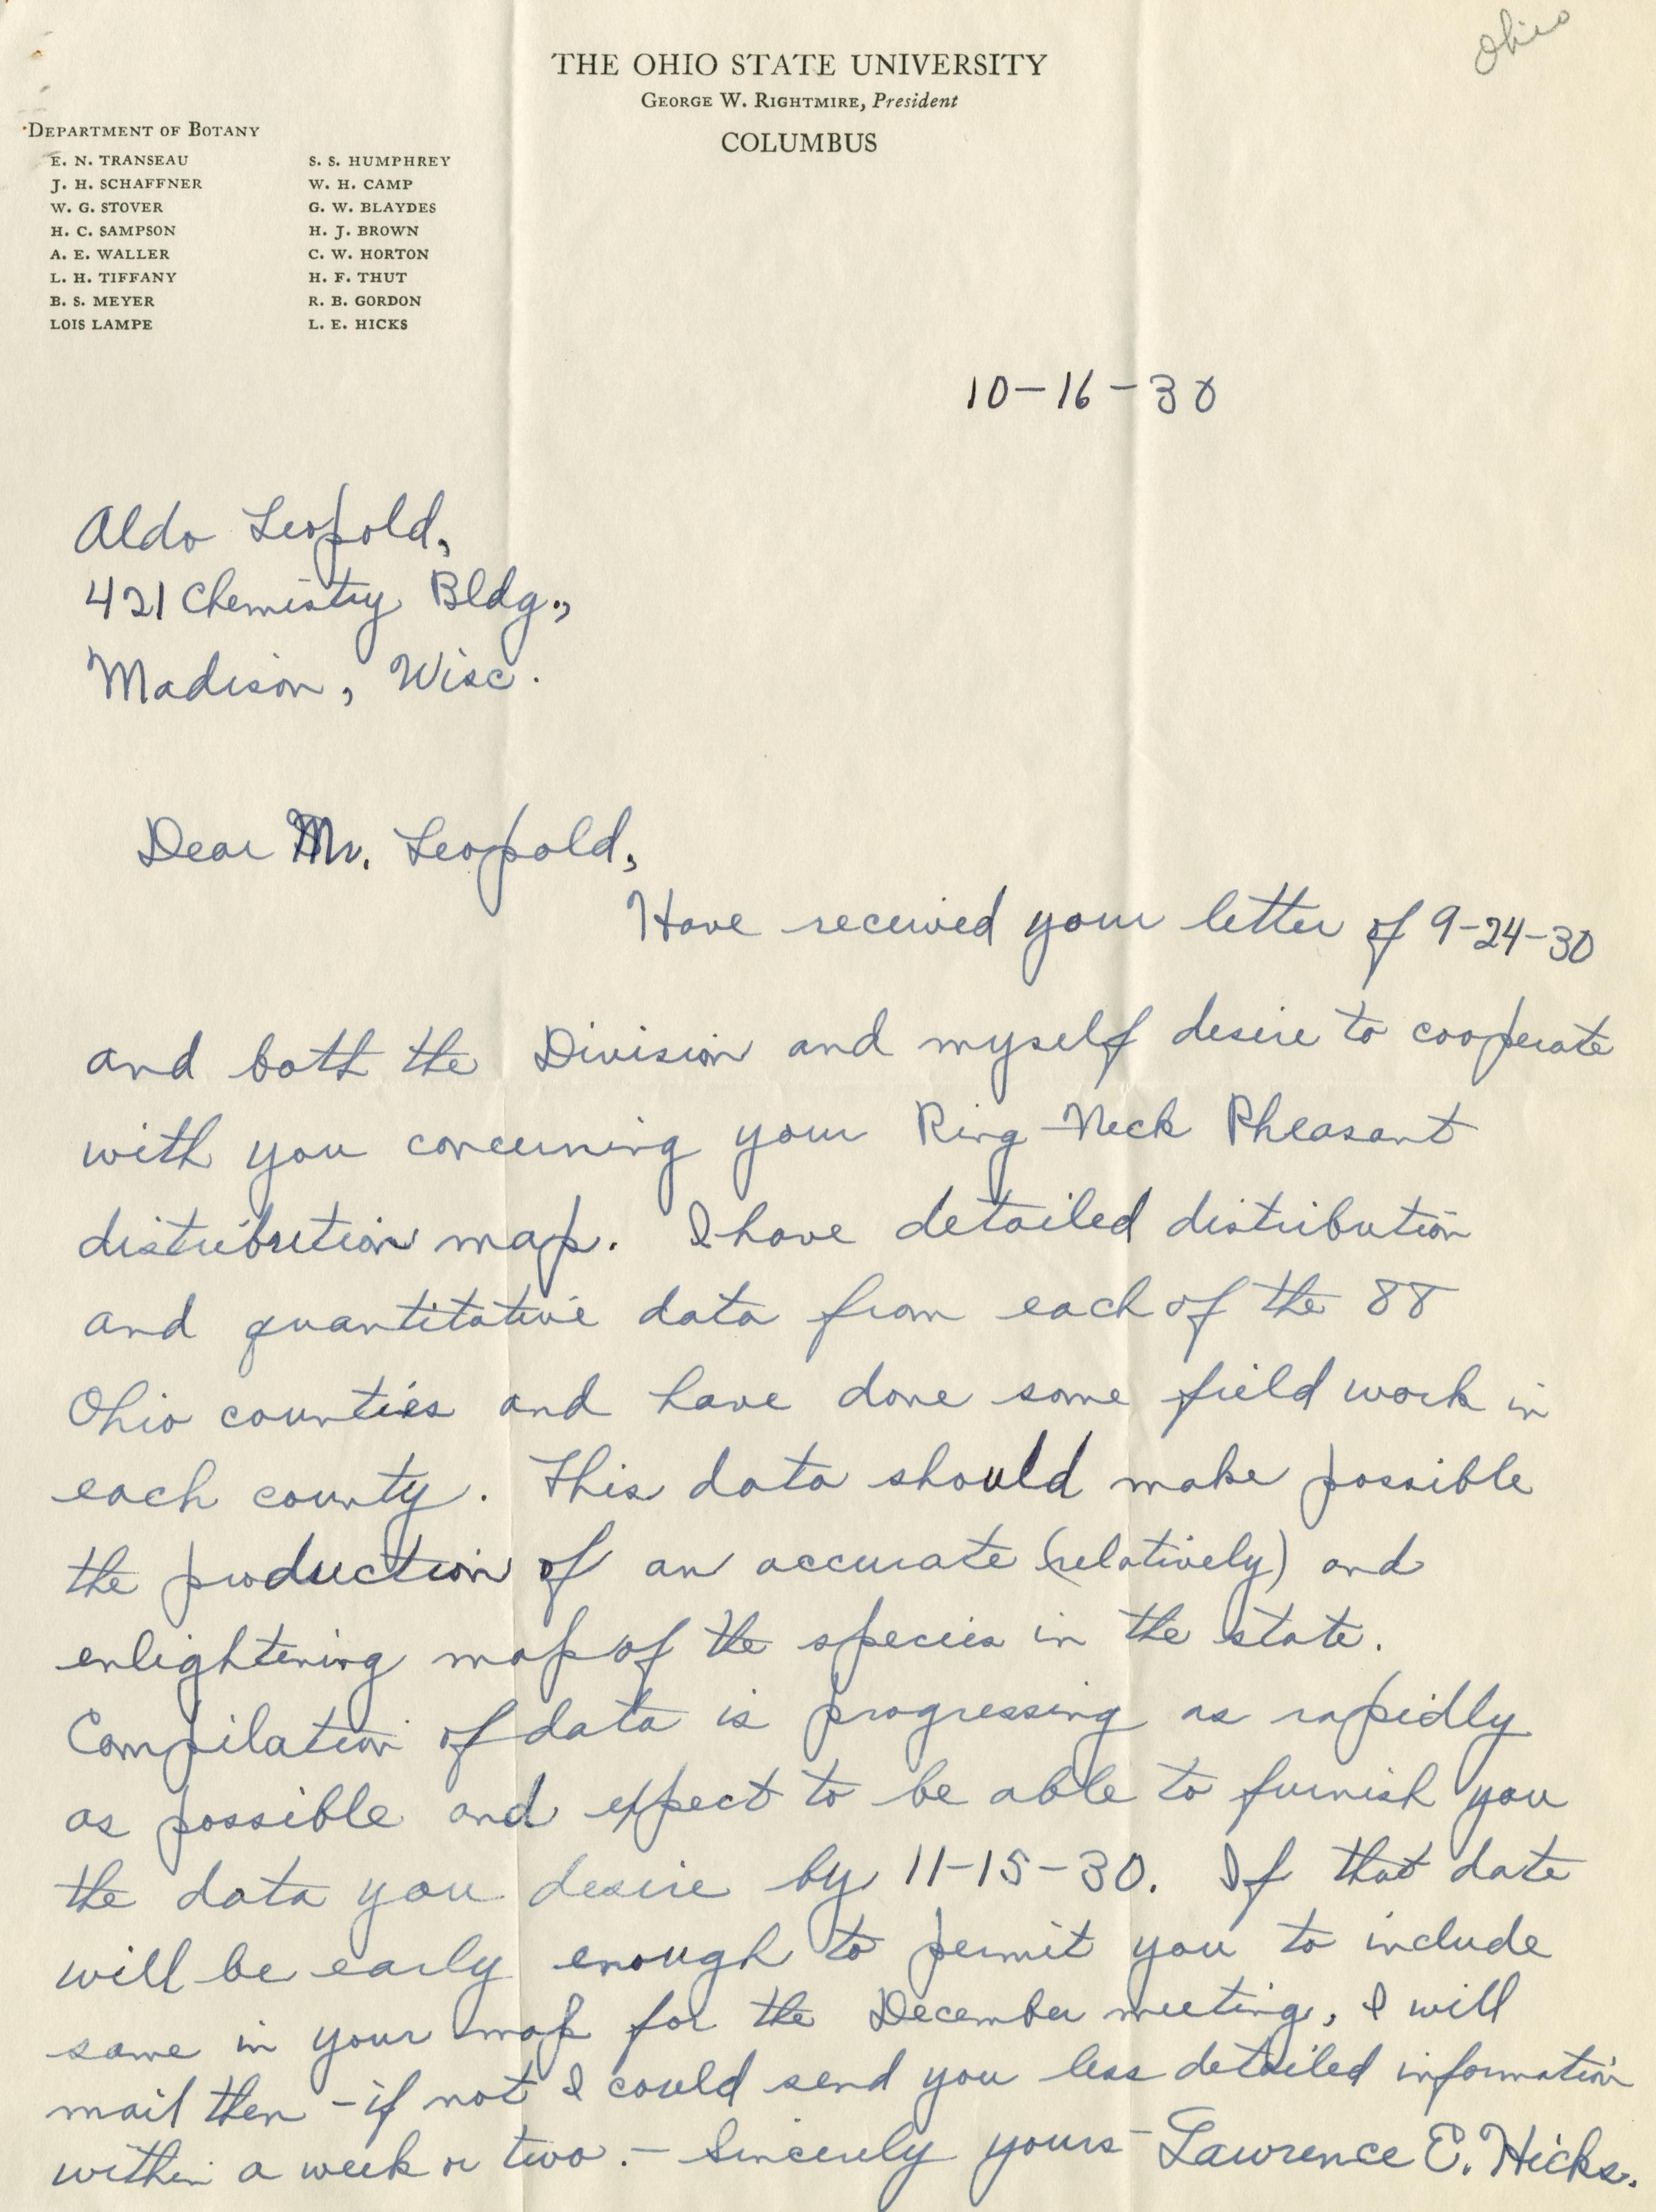 Ohio
THE OHIO STATE UNIVERSITY
GEORGE W. RIGHTMIRE, President
COLUMBUS
DEPARTMENT OF BOTANY
E. N. TRANSEAU
J. H. SCHAFFNER
W. G. STOVER
H. C. SAMPSON
A. E. WALLER
L. H. TIFFANY
B. S. MEYER
LOIS LAMPE
S. S. HUMPHREY
W. H. CAMP
G. W. BLAYDES
H. J. BROWN
C. W. HORTON
H. F. THUT
R. B. GORDON
L. E. HICKS
10-16-30
Aldo Leopold,
421 Chemistry Bldg.,
Madison, Wisc.
Dear Mr. Leopold,
Have received your letter of 9-24-30
and both the Division and myself desire to cooperate
with you concerning your Ring-Neck Pheasant
distribution map. I have detailed distribution
and quantitative data from each of the 88
Ohio counties and have done some field work in
each county. This data should make possible
the production of an accurate (relatively) and
enlightening map of the species in the state.
Compilation of data is progressing as rapidly
as possible and expect to be able to furnish you
the data you desire by 11-15-30. If that date
will be early enough to permit you to include
same in your map for the December meeting, I will
mail then - if not I could send you less detailed information
within a week or two. - Sincerely yours - Lawrence E. Hicks.